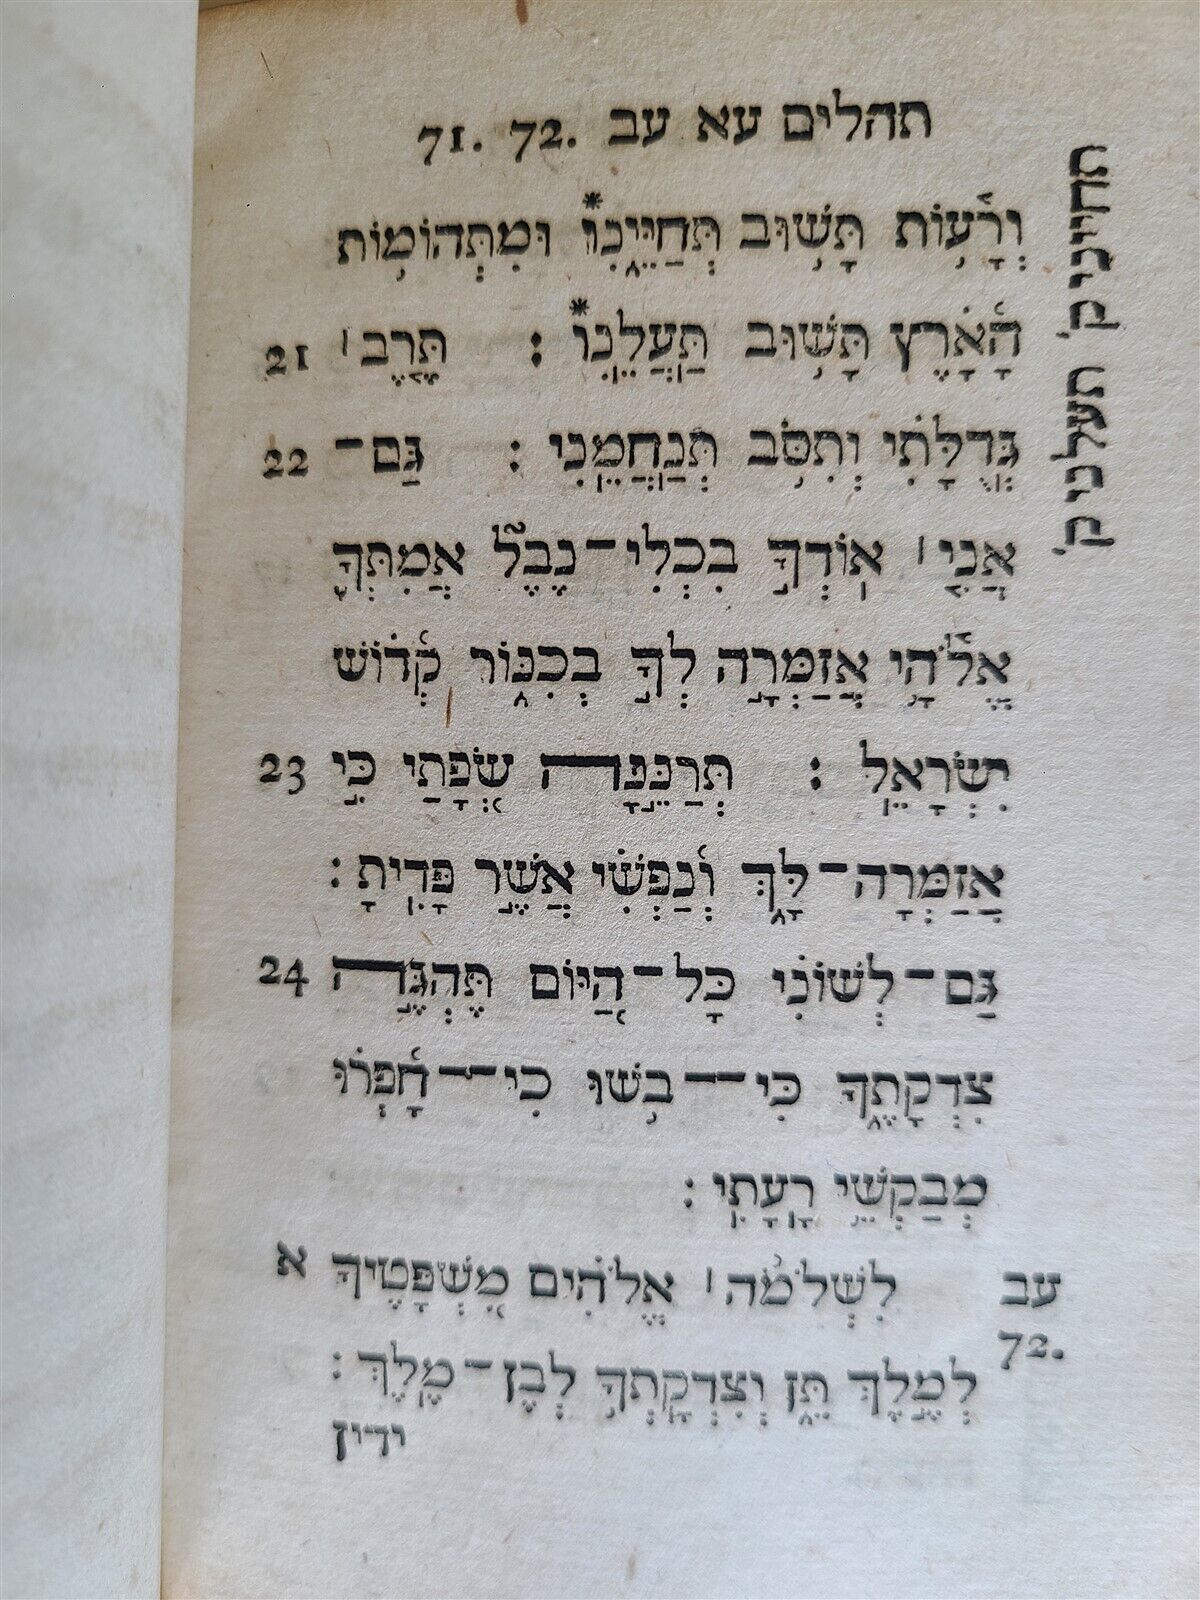 תהלים עא עב 71. 72.
וְרָע֥וֹת תָּשׁ֥וּב תְּחַיֵּ֑ינִו* וּמִתְּהוֹמ֥וֹת
הָ֝אָ֗רֶץ תָּשׁ֥וּב תַּעֲלֵֽנִו* : תֶּ֤רֶב ׀ 21
גְּֽדֻלָּתִ֗י וְתִסֹּ֥ב תְּֽנַחֲמֵֽנִי : גַּם־ 22
אֲנִ֤י ׀ אֽוֹדְךָ֣ בִכְלִי־נֶבֶל֮ אֲמִתְּךָ֪
אֱלֹ֫הָ֥י אֲזַמְּרָ֣ה לְךָ֣ בְכִנּ֑וֹר קְ֝ד֗וֹשׁ
יִשְׂרָאֵֽל : תְּרַנֵּ֣נָּה שְׂ֭פָתַי כִּ֣י 23
אֲזַמְּרָה־לָּ֑ךְ וְ֝נַפְשִׁ֗י אֲשֶׁ֣ר פָּדִֽיתָ :
גַּם־לְשׁוֹנִ֗י כָּל־הַ֭יּוֹם תֶּהְגֶּ֣ה 24
צִדְקָתֶ֑ךָ כִּי־בֹ֥שׁוּ כִֽי־חָ֝פְר֗וּ
מְבַקְשֵׁ֥י רָעָתִֽי :
עב לִשְׁלֹמֹ֨ה ׀ אֱלֹהִ֗ים מִ֭שְׁפָּטֶיךָ א
72. לְמֶ֣לֶךְ תֵּ֑ן וְצִדְקָתְךָ֥ לְבֶן־מֶֽלֶךְ :
ידין
תחיני ק׳ תעלני ק׳